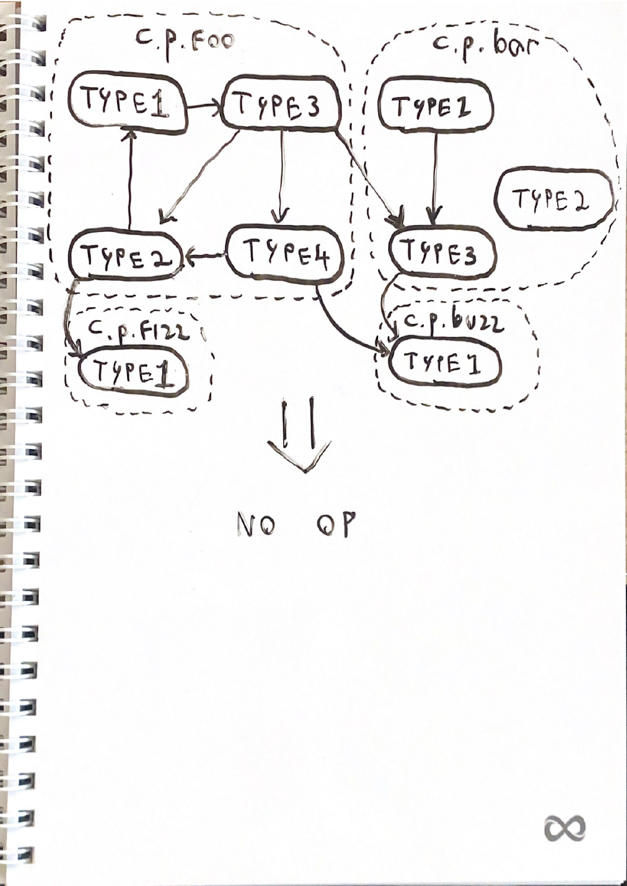 C.P.FOO
C.P.bar
TYPE1
TYPE3
TYPE1
TYPE2
TYPE2
TYPE4
TYPE3
C.P.FIZZ
TYPE1
C.P.buzz
TYPE1
NO OP